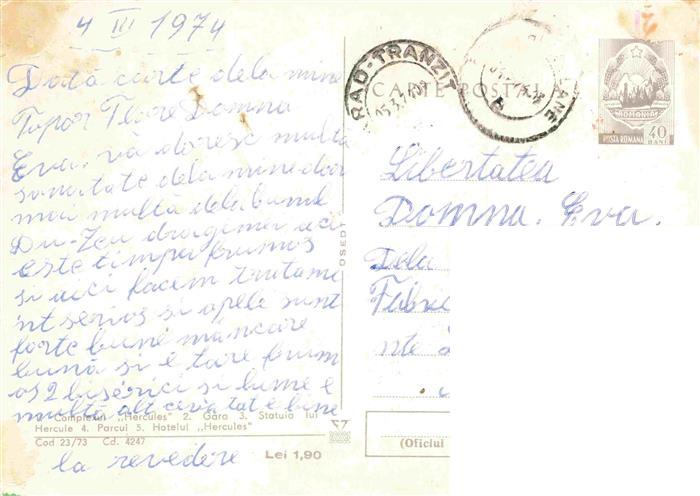 4 III 1974
Dată carte dela mine
Topor Floare Domna
Eva. vă doresc multă
sanatate dela mine dar
mai multă dela bunul
Du-Zeu dragimei aci
este timpu frumos
si aici facem tratame
nt serios si apele sunt
forte bune mâncare
bună si e tare frum
os 2 biserici si lume e
multă alt ceva tat e bine
la revedere
1. Complexul „Hercules" 2. Gara 3. Statuia lui
Hercule 4. Parcul 5. Hotelul „Hercules"
Cod 23/73 Cd. 4247
Lei 1,90
OSEDT
CARTE POSTALA
RAD-TRANZIT
POSTA ROMANA
ROMANIA
40
BANI
Libertatea
Domna. Eva.
Dela
Fabric
nte
(Oficiul